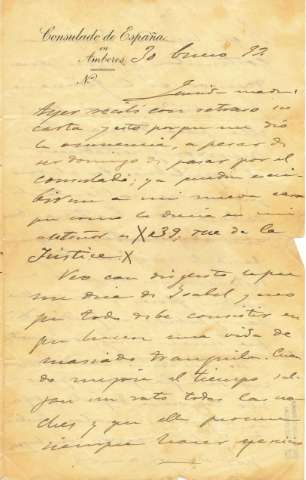 Consulado de España
en
Amberes
30 Enero 92
Nº
Querida madre:
Ayer recibí con retraso su
carta y esto porque me dió
la ocurrencia, a pesar de
ser domingo de pasar por el
consulado; ya pueden escri
birme a mi nueva casa
que como le decía en mi
anterior es X 39, rue de la
Justice X
Veo con disgusto lo que
me dice de Isabel y creo
que todo debe consistir en
que hacen una vida de
masiado tranquila. Cuan
do mejore el tiempo sal
gan un rato todas las no
ches y que ella procure
siempre hacer